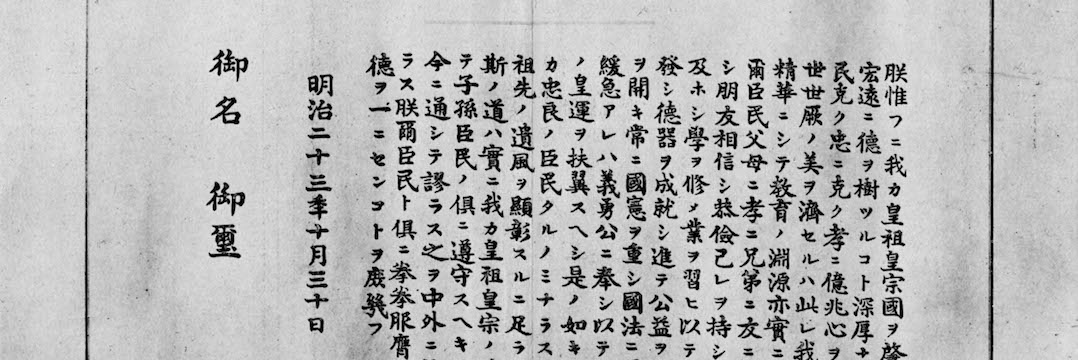 朕惟フニ我カ皇祖皇宗國ヲ肇
宏遠ニ德ヲ樹ツルコト深厚ナ
民克ク忠ニ克ク孝ニ億兆心ヲ
世世厥ノ美ヲ濟セルハ此レ我
精華ニシテ敎育ノ淵源亦實ニ
爾臣民父母ニ孝ニ兄弟ニ友ニ
シ朋友相信シ恭儉己レヲ持シ
及ホシ學ヲ修メ業ヲ習ヒ以テ
發シ德器ヲ成就シ進テ公益ヲ
ヲ開キ常ニ國憲ヲ重シ國法ニ
緩急アレハ義勇公ニ奉シ以テ
ノ皇運ヲ扶翼スヘシ是ノ如キ
カ忠良ノ臣民タルノミナラス
祖先ノ遺風ヲ顯彰スルニ足ラ
斯ノ道ハ實ニ我カ皇祖皇宗ノ
テ子孫臣民ノ俱ニ遵守スヘキ
今ニ通シテ謬ラス之ヲ中外ニ
ラス朕爾臣民ト俱ニ拳拳服膺
德ヲ一ニセンコトヲ庶幾フ
明治二十三年十月三十日
御名 御璽